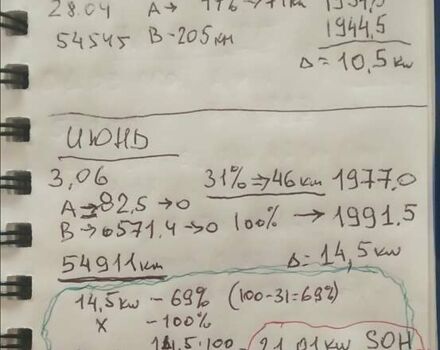 28.04 A→
54545 B-205км 1944,5
Δ=10,5kw
ИЮНЬ
3,06 31%⇒46км 1977,0
A⇒82,5→0
B→0571,4→0 100%→1991.5
54911км Δ=14,5kw
14,5kw-69% (100-31=69%)
x -100%
14.5·100 21.01kw SOH